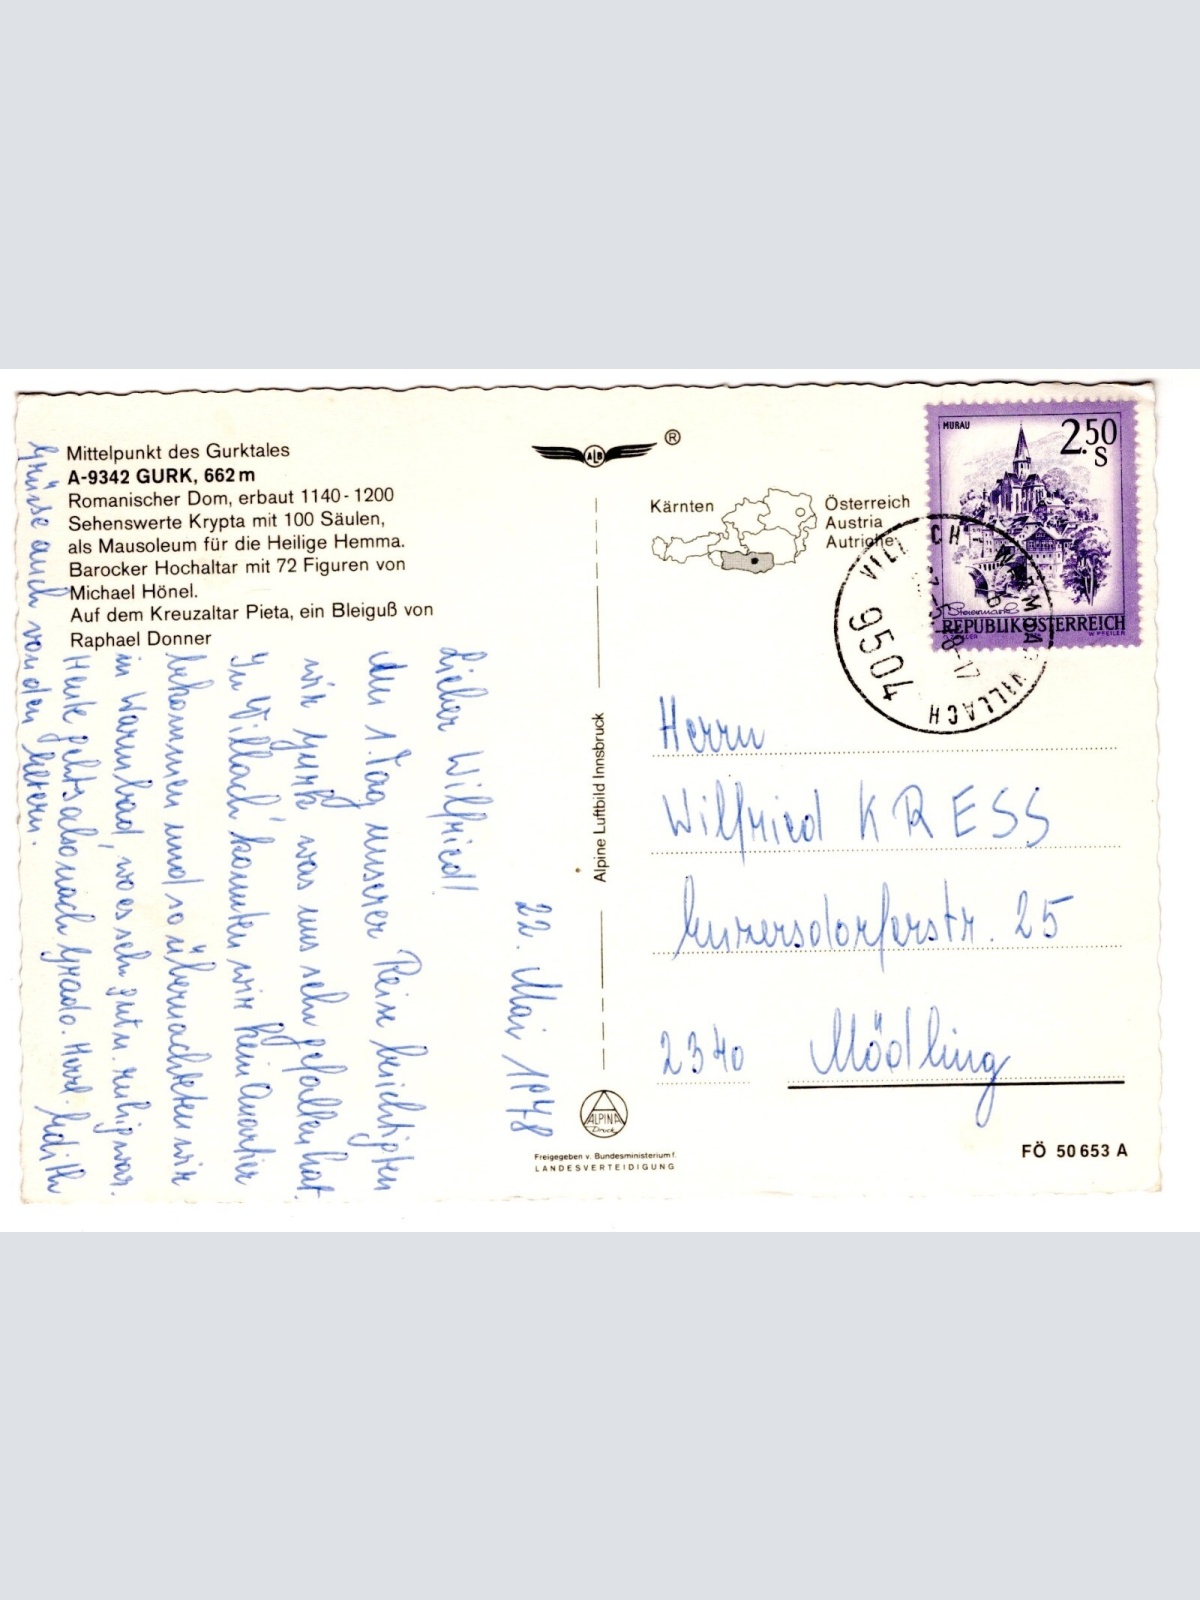 Mittelpunkt des Gurktales
A-9342 GURK, 662 m
Romanischer Dom, erbaut 1140-1200
Sehenswerte Krypta mit 100 Säulen,
als Mausoleum für die Heilige Hemma.
Barocker Hochaltar mit 72 Figuren von
Michael Hönel.
Auf dem Kreuzaltar Pieta, ein Bleiguß von
Raphael Donner
22. Mai 1978
Lieber Wilfried!
Am 1. Tag unserer Reise besichtigten
wir Gurk was uns sehr gefallen hat.
In Villach konnten wir kein Quartier
bekommen und so übernachteten wir
in Warmbad, wo es sehr gut u. ruhig war.
Heute geht's also nach Grado. Herzl. Edith
Grüsse auch von den Eltern.
ALB
®
Kärnten
Österreich
Austria
Autriche
Alpine Luftbild Innsbruck
ALPINA
Druck
Freigegeben v. Bundesministerium f.
LANDESVERTEIDIGUNG
MURAU
2.50
S
Steiermark
REPUBLIK ÖSTERREICH
W. PFEILER
9504 VILLACH - WARMBAD VILLACH
Herrn
Wilfried KRESS
Enzersdorferstr. 25
2340 Mödling
FÖ 50 653 A